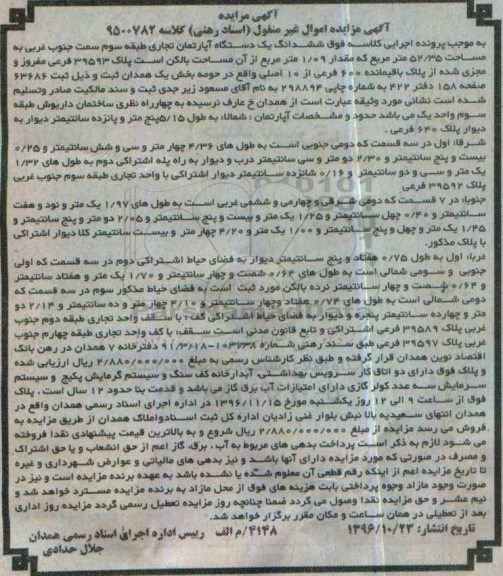 آگهی مزایده
آگهی مزایده اموال غیر منقول (اسناد رهنی) کلاسه ۹۵۰۰۷۸۲
به موجب پرونده اجرایی کلاسه فوق ششدانگ یک دستگاه آپارتمان تجاری طبقه سوم سمت جنوب غربی به
مساحت ۵۲/۳۵ متر مربع که مقدار ۱/۰۹ متر مربع از آن مساحت بالکن است پلاک ۳۹۵۹۳ فرعی مفروز و
مجزی شده از پلاک باقیمانده ۶۰۰ فرعی از ۱۰ اصلی واقع در حومه بخش یک همدان ثبت و ذیل ثبت ۶۳۶۸۶
صفحه ۱۵۸ دفتر ۴۲۲ به شماره چاپی ۲۹۸۸۹۴ به نام آقای مسعود زیر جدی ثبت و سند مالکیت صادر وتسلیم
شده است نشانی مورد وثیقه عبارت است از همدان خ عارف نرسیده به چهارراه نظری ساختمان داریوش طبقه
سوم واحد یک می باشد حدود و مشخصات آپارتمان : شمالا: به طول ۵/۱۵پنج متر و پانزده سانتیمتر دیوار به
دیوار پلاک ۶۴۰ فرعی .
شرقا: اول در سه قسمت که دومی جنوبی است به طول های ۴/۳۶ چهار متر و سی و شش سانتیمتر و ۰/۲۵
بیست و پنج سانتیمتر و ۲/۳۰ دو متر و سی سانتیمتر درب و دیوار به راه پله اشتراکی دوم به طول های ۱/۳۲
یک متر و سی و دو سانتیمتر و ۰/۱۶ شانزده سانتیمتر دیوار اشتراکی با واحد تجاری طبقه سوم جنوب غربی
پلاک ۳۹۵۹۲ فرعی
جنوبا: در ۷ قسمت که دومی شرقی و چهارمی و ششمی غربی است به طول های ۱/۹۷ یک متر و نود و هفت
سانتیمتر و ۰/۴۰ چهل سانتیمتر و ۱/۲۵ یک متر و بیست و پنج سانتیمتر و ۲/۰۵ دو متر و پنج سانتیمتر و
۱/۴۵ یک متر و چهل و پنج سانتیمتر و ۱/۰۰ یک متر و ۴/۲۰ چهار متر و بیست سانتیمتر کلا دیوار اشتراکی
با پلاک مذکور.
غربا: اول به طول ۰/۷۵ هفتاد و پنج سانتیمتر دیوار به فضای حیاط اشتراکی دوم در سه قسمت که اولی
جنوبی و سومی شمالی است به طول های ۰/۶۴ شصت و چهار سانتیمتر و ۱/۷۰ یک متر و هفتاد سانتیمتر
و ۰/۶۴ شصت و چهار سانتیمتر نرده بالکن مورد ثبت است به فضای حیاط مذکور سوم در سه قسمت که
دومی شمالی است به طول های ۰/۷۴ هفتاد وچهار سانتیمتر و ۴/۱۰ چهار متر و ده سانتیمتر و ۲/۱۴ دو
متر و چهارده سانتیمتر پنجره و دیوار به فضای حیاط اشتراکی کف: با سقف واحد تجاری طبقه دوم جنوب
غربی پلاک ۳۹۵۸۹ فرعی اشتراکی و تابع قانون مدنی است سقف: با کف واحد تجاری طبقه چهارم جنوب
غربی پلاک ۳۹۵۹۷ فرعی طبق سند رهنی شماره ۱۰۶۷۳۸-۹۱/۳/۱۸ دفترخانه ۷ همدان در رهن بانک
اقتصاد نوین همدان قرار گرفته و طبق نظر کارشناس رسمی به مبلغ ۲/۸۸۰/۰۰۰/۰۰۰ ریال ارزیابی شده
و پلاک فوق دارای دو اتاق کار سرویس بهداشتی، آبدارخانه کف سنگ و سیستم گرمایش پکیج و سیستم
سرمایش سه عدد کولر گازی دارای امتیازات آب برق گاز می باشد و قدمت بنا حدود ۱۲ سال است ، پلاک
فوق از ساعت ۹ الی ۱۲ روز یکشنبه مورخ ۱۳۹۶/۱۱/۱۵ در اداره اجرای اسناد رسمی همدان واقع در
همدان انتهای سعیدیه بالا نبش بلوار غنی زادیان اداره کل ثبت اسنادواملاک همدان از طریق مزایده به
فروش می رسد مزایده از مبلغ ۲/۸۸۰/۰۰۰/۰۰۰ ریال شروع و به بالاترین قیمت پیشنهادی نقدا فروخته
می شود لازم به ذکر است پرداخت بدهی های مربوط به آب، برق، گاز اعم از حق انشعاب و یا حق اشتراک
و مصرف در صورتی که مورد مزایده دارای آنها باشد و نیز بدهی های مالیاتی و عوارض شهرداری و غیره
تا تاریخ مزایده اعم از اینکه رقم قطعی آن معلوم شده یا نشده باشد به عهده برنده مزایده است و نیز در
صورت وجود مازاد وجوه پرداختی بابت هزینه های فوق از محل مازاد به برنده مزایده مسترد خواهد شد و
نیم عشر و حق مزایده نقدا وصول می گردد ضمنا چنانچه روز مزایده تعطیل رسمی گردد مزایده روز اداری
بعد از تعطیلی در همان ساعت و مکان مقرر برگزار خواهد شد.
تاریخ انتشار: ۱۳۹۶/۱۰/۲۳ ۴۱۴۸/م الف رییس اداره اجرای اسناد رسمی همدان
جلال حدادی